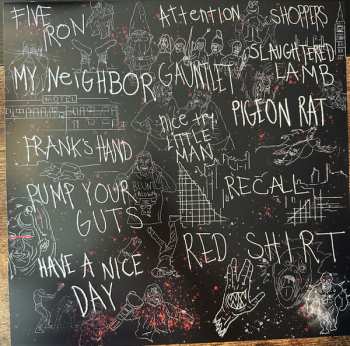 FIVE IRON
Attention SHOPPERS
MY NEIGHBOR
GAUNTLET
SLAUGHTERED LAMB
PIGEON RAT
NICE TRY LITTLE MAN
FRANK'S HAND
PUMP YOUR GUTS
RECALL
HAVE A NICE DAY
RED SHIRT